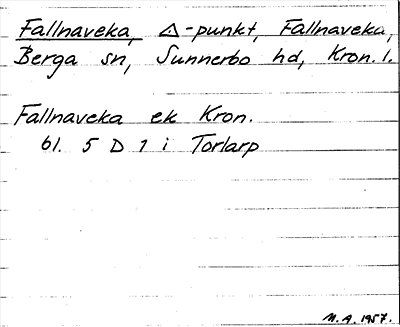 Fallnaveka, △-punkt, Fallnaveka,
Berga sn, Sunnerbo hd, Kron. l.
Fallnaveka ek Kron.
bl. 5 D 1 i Torlarp
M. A. 1957.